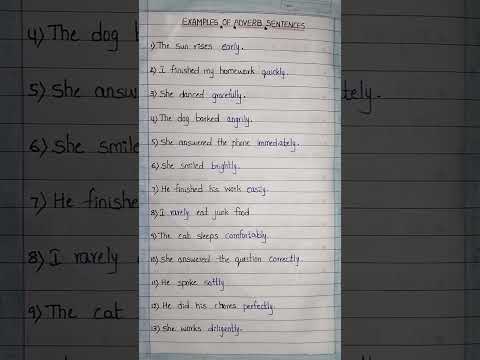 EXAMPLES OF ADVERB SENTENCES
1) The sun rises early.
2) I finished my homework quickly.
3) She danced gracefully.
4) The dog barked angrily.
5) She answered the phone immediately.
6) She smiled brightly.
7) He finished his work easily.
8) I rarely eat junk food
9) The cat sleeps comfortably.
10) She answered the question correctly
11) He spoke softly
12) He did his chores perfectly.
13) She works diligently.
4) The dog
5) She answe
tely.
6) She smile
7) He finished
8) I rarely
9) The cat